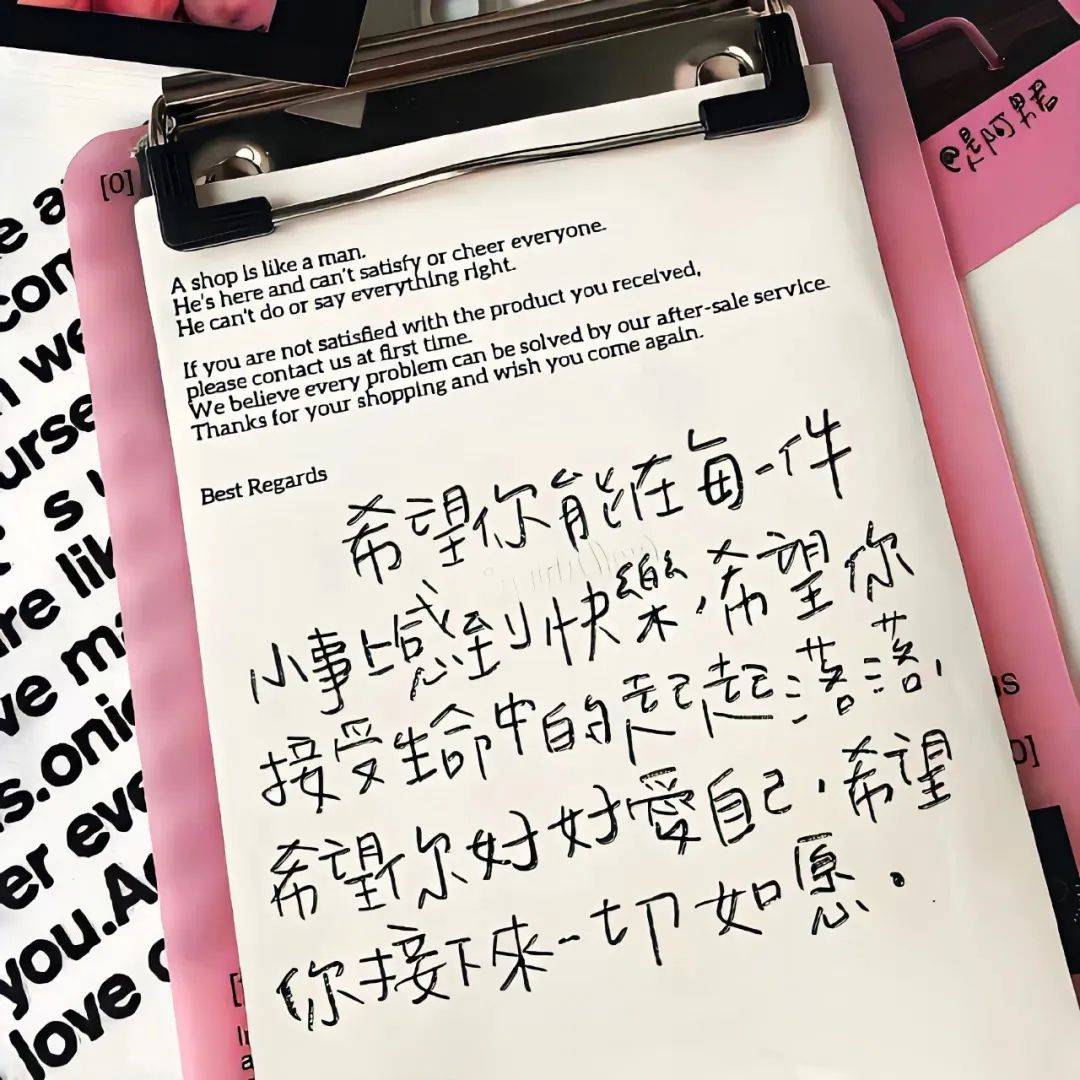 [0]
@是阿畧君
A shop is like a man.
He's here and can't satisfy or cheer everyone.
He can't do or say everything right.
If you are not satisfied with the product you received,
please contact us at first time.
We believe every problem can be solved by our after-sale service.
Thanks for your shopping and wish you come again.
Best Regards
希望你能在每一件
小事上感到快樂,希望你
接受生命中的起起落落,
希望你好好愛自己,希望
你接下來一切如愿.
you.
love